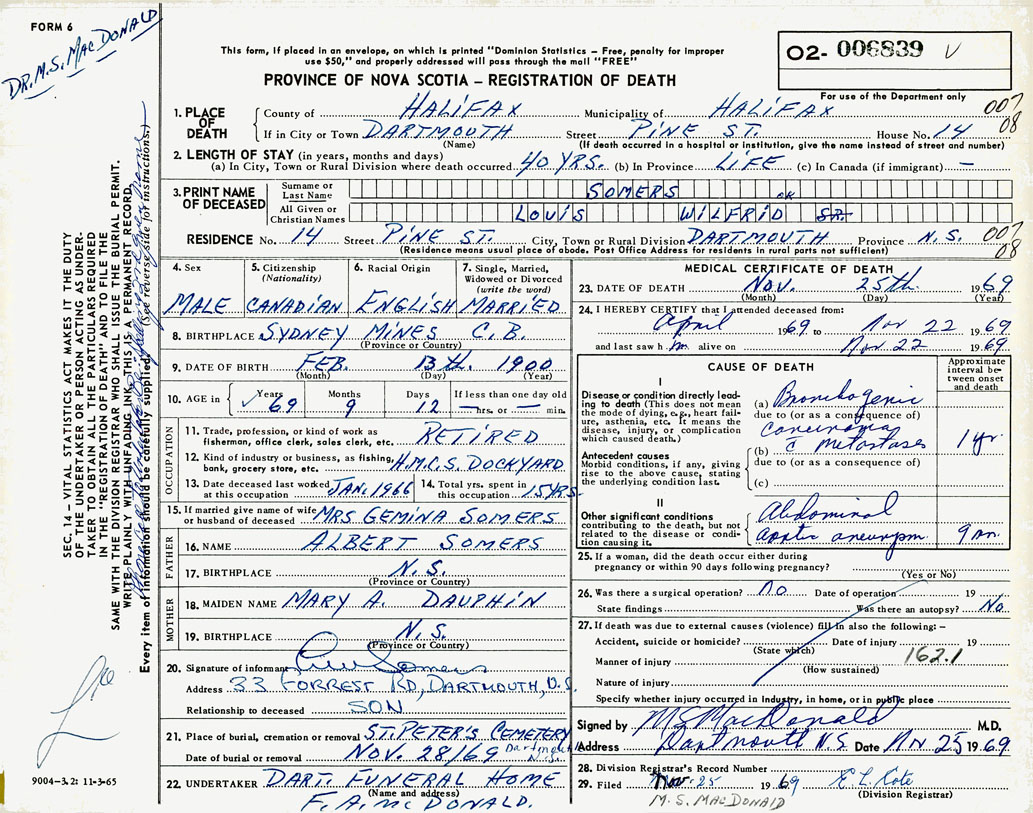 FORM 6
DR. M.S. MACDONALD
This form, if placed in an envelope, on which is printed "Dominion Statistics – Free, penalty for improper
use $50," and properly addressed will pass through the mail "FREE"
PROVINCE OF NOVA SCOTIA – REGISTRATION OF DEATH
O2- 006839
For use of the Department only
1. PLACE OF DEATH
County of HALIFAX Municipality of HALIFAX 007
If in City or Town DARTMOUTH Street PINE ST. House No. 14 08
(Name) (If death occurred in a hospital or institution, give the name instead of street and number)
2. LENGTH OF STAY (in years, months and days)
(a) In City, Town or Rural Division where death occurred 40 YRS. (b) In Province LIFE (c) In Canada (if immigrant) —
3. PRINT NAME OF DECEASED
Surname or Last Name SOMERS OK
All Given or Christian Names LOUIS WILFRID SR.
RESIDENCE No. 14 Street PINE ST. City, Town or Rural Division DARTMOUTH Province N.S. 007
(Residence means usual place of abode. Post Office Address for residents in rural parts not sufficient) 08
SEC. 14 – VITAL STATISTICS ACT MAKES IT THE DUTY
OF THE UNDERTAKER OR PERSON ACTING AS UNDER-
TAKER TO OBTAIN ALL THE PARTICULARS REQUIRED
IN THE "REGISTRATION OF DEATH" AND TO FILE THE
SAME WITH THE DIVISION REGISTRAR WHO SHALL ISSUE THE BURIAL PERMIT.
WRITE PLAINLY WITH UNFADING INK, THIS IS A PERMANENT RECORD.
Every item of information should be carefully supplied. (See reverse side for instructions.)
4. Sex
MALE
5. Citizenship
(Nationality)
CANADIAN
6. Racial Origin
ENGLISH
7. Single, Married,
Widowed or Divorced
(write the word)
MARRIED
8. BIRTHPLACE SYDNEY MINES C.B.
(Province or Country)
9. DATE OF BIRTH FEB. 13th. 1900
(Month) (Day) (Year)
10. AGE in Years Months Days If less than one day old
69 9 12 — hrs. or — min.
OCCUPATION
11. Trade, profession, or kind of work as
fisherman, office clerk, sales clerk, etc. RETIRED
12. Kind of industry or business, as fishing,
bank, grocery store, etc. H.M.C.S. DOCKYARD
13. Date deceased last worked
at this occupation JAN. 1966
14. Total yrs. spent in
this occupation 15 YRS.
15. If married give name of wife
or husband of deceased MRS GEMINA SOMERS
FATHER
16. NAME ALBERT SOMERS
17. BIRTHPLACE N.S.
(Province or Country)
MOTHER
18. MAIDEN NAME MARY A. DAUPHIN
19. BIRTHPLACE N.S.
(Province or Country)
20. Signature of informant Somers
Address 33 FORREST RD, DARTMOUTH, N.S.
Relationship to deceased SON
21. Place of burial, cremation or removal ST. PETER'S CEMETERY
Date of burial or removal NOV. 28/69 Dartmouth N.S.
22. UNDERTAKER DART. FUNERAL HOME
(Name and address)
F. A. McDONALD.
9004–3.2: 11-3-65
MEDICAL CERTIFICATE OF DEATH
23. DATE OF DEATH Nov. 25th. 1969
(Month) (Day) (Year)
24. I HEREBY CERTIFY that I attended deceased from:
April 1969 to Nov 22 1969
and last saw h im alive on Nov. 22 1969
CAUSE OF DEATH
Approximate
interval be-
tween onset
and death
I
Disease or condition directly lead-
ing to death (This does not mean
the mode of dying, e.g., heart fail-
ure, asthenia, etc. It means the
disease, injury, or complication
which caused death.)
(a) Bronchogenic
due to (or as a consequence of)
carcinoma
(b) c̄ metastases 1 yr
due to (or as a consequence of)
(c)
Antecedent causes
Morbid conditions, if any, giving
rise to the above cause, stating
the underlying condition last.
II
Other significant conditions
contributing to the death, but not
related to the disease or condi-
tion causing it.
Abdominal
aortic aneurysm 9 mn.
25. If a woman, did the death occur either during
pregnancy or within 90 days following pregnancy?
(Yes or No)
26. Was there a surgical operation? no Date of operation 19
State findings Was there an autopsy? No
27. If death was due to external causes (violence) fill in also the following: –
Accident, suicide or homicide? Date of injury 19
(State which)
Manner of injury 162.1
(How sustained)
Nature of injury
Specify whether injury occurred in Industry, in home, or in public place
Signed by M S MacDonald M.D.
Address Dartmouth N.S. Date Nov. 25 1969
28. Division Registrar's Record Number
29. Filed Nov. 25 1969 E. L. Cote
(Division Registrar)
M. S. MACDONALD